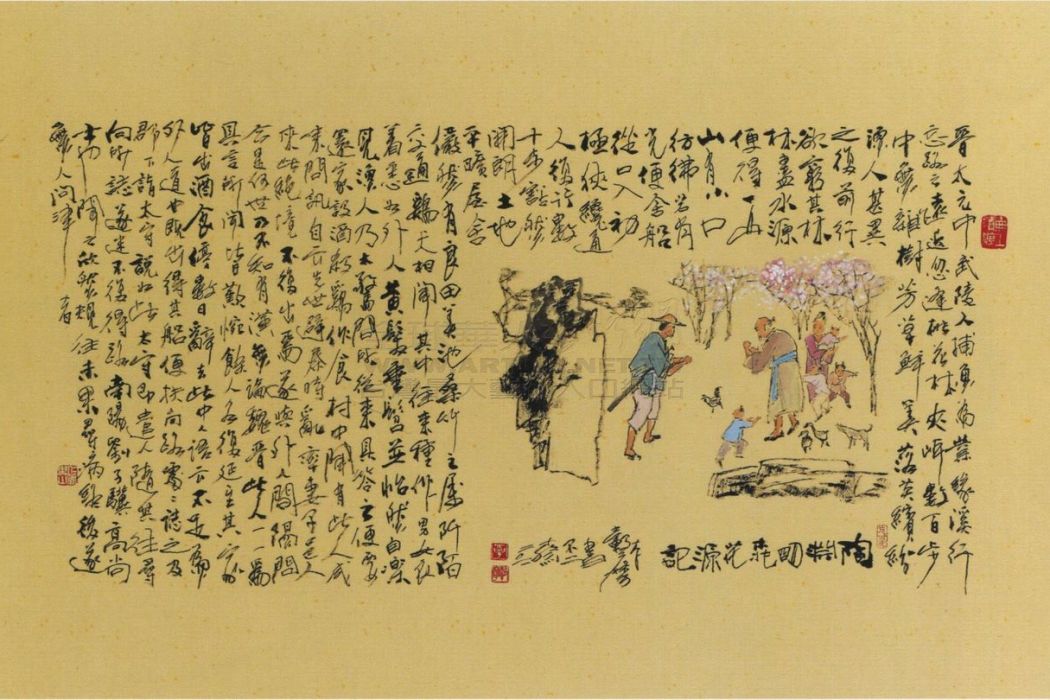 晋太元中武陵人捕魚為業緣溪行
忘路之遠近忽逢桃花林夾岸數百步
中無雜樹芳草鮮美落英繽紛
漁人甚異
之復前行
欲窮其林
林盡水源
便得一山
山有小口
彷彿若有
光便舍船
從口入初
極狹纔通
人復行數
十步豁然
開朗土地
平曠屋舍
儼然有良田美池桑竹之屬阡陌
交通鷄犬相聞其中往來種作男女衣
着悉如外人黄髮垂髫並怡然自樂
見漁人乃大驚問所從來具答之便要
還家設酒殺鷄作食村中聞有此人咸
來問訊自云先世避秦時亂率妻子邑人
來此絶境不復出焉遂與外人間隔問
今是何世乃不知有漢無論魏晋此人一一為
具言所聞皆歎惋餘人各復延至其家
皆出酒食停數日辭去此中人語云不足為
外人道也既出得其船便扶向路處々誌之及
郡下詣太守說如此太守即遣人隨其往尋
向所誌遂迷不復得路南陽劉子驥高尚
士也聞之欣然規往未果尋病終後遂
無人問津者
陶淵明桃花源記